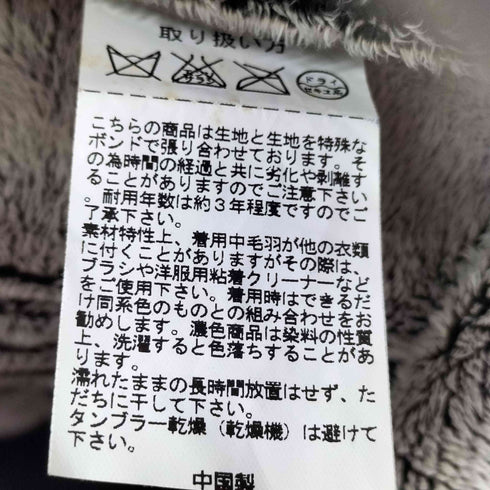 取り扱い方
エンソサラシ
ドライ
セキユ系
こちらの商品は生地と生地を特殊な
ボンドで張り合わせております。そ
の為時間の経過と共に劣化や剥離す
ることがありますのでご注意下さい
。耐用年数は約３年程度ですのでご
了承下さい。
素材特性上、着用中毛羽が他の衣類
に付くことがありますがその際は、
ブラシや洋服用粘着クリーナーなど
をご使用下さい。着用時はできるだ
け同系色のものとの組み合わせをお
勧めします。濃色商品は染料の性質
上、洗濯すると色落ちすることがあ
ります。
濡れたままの長時間放置はせず、た
だちに干して下さい。
タンブラー乾燥（乾燥機）は避けて
下さい。
中国製